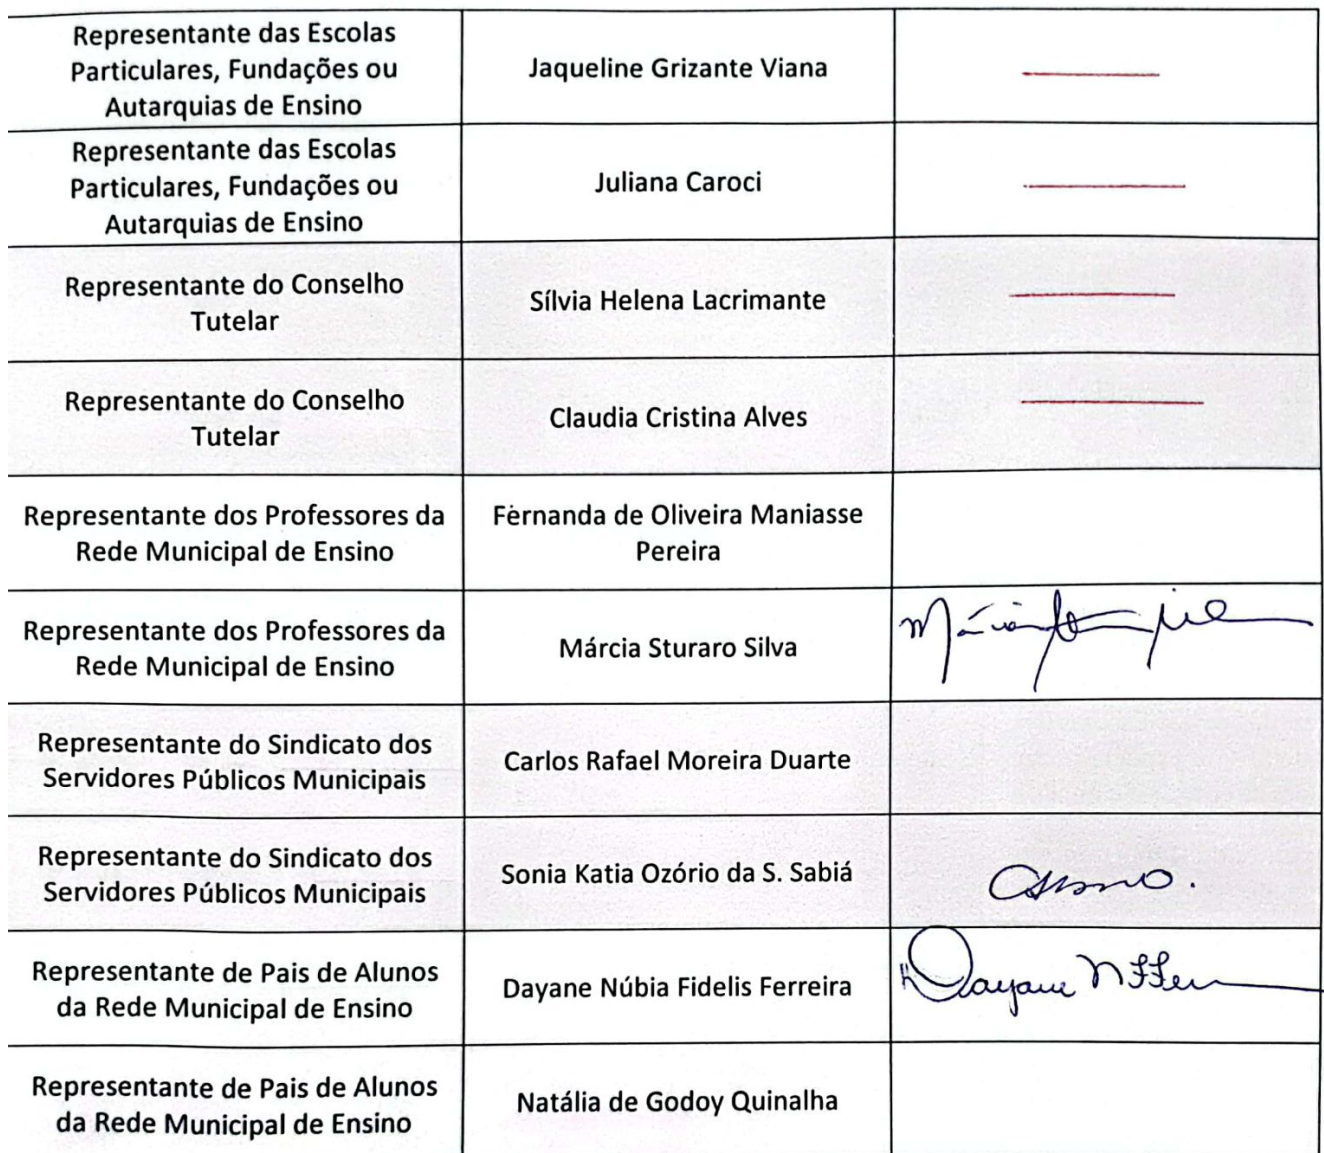 Representante das Escolas
Particulares, Fundações ou
Autarquias de Ensino
Jaqueline Grizante Viana
Representante das Escolas
Particulares, Fundações ou
Autarquias de Ensino
Juliana Caroci
Representante do Conselho
Tutelar
Sílvia Helena Lacrimante
Representante do Conselho
Tutelar
Claudia Cristina Alves
Representante dos Professores da
Rede Municipal de Ensino
Fernanda de Oliveira Maniasse
Pereira
Representante dos Professores da
Rede Municipal de Ensino
Márcia Sturaro Silva
Representante do Sindicato dos
Servidores Públicos Municipais
Carlos Rafael Moreira Duarte
Representante do Sindicato dos
Servidores Públicos Municipais
Sonia Katia Ozório da S. Sabiá
Representante de Pais de Alunos
da Rede Municipal de Ensino
Dayane Núbia Fidelis Ferreira
Dayane
Representante de Pais de Alunos
da Rede Municipal de Ensino
Natália de Godoy Quinalha